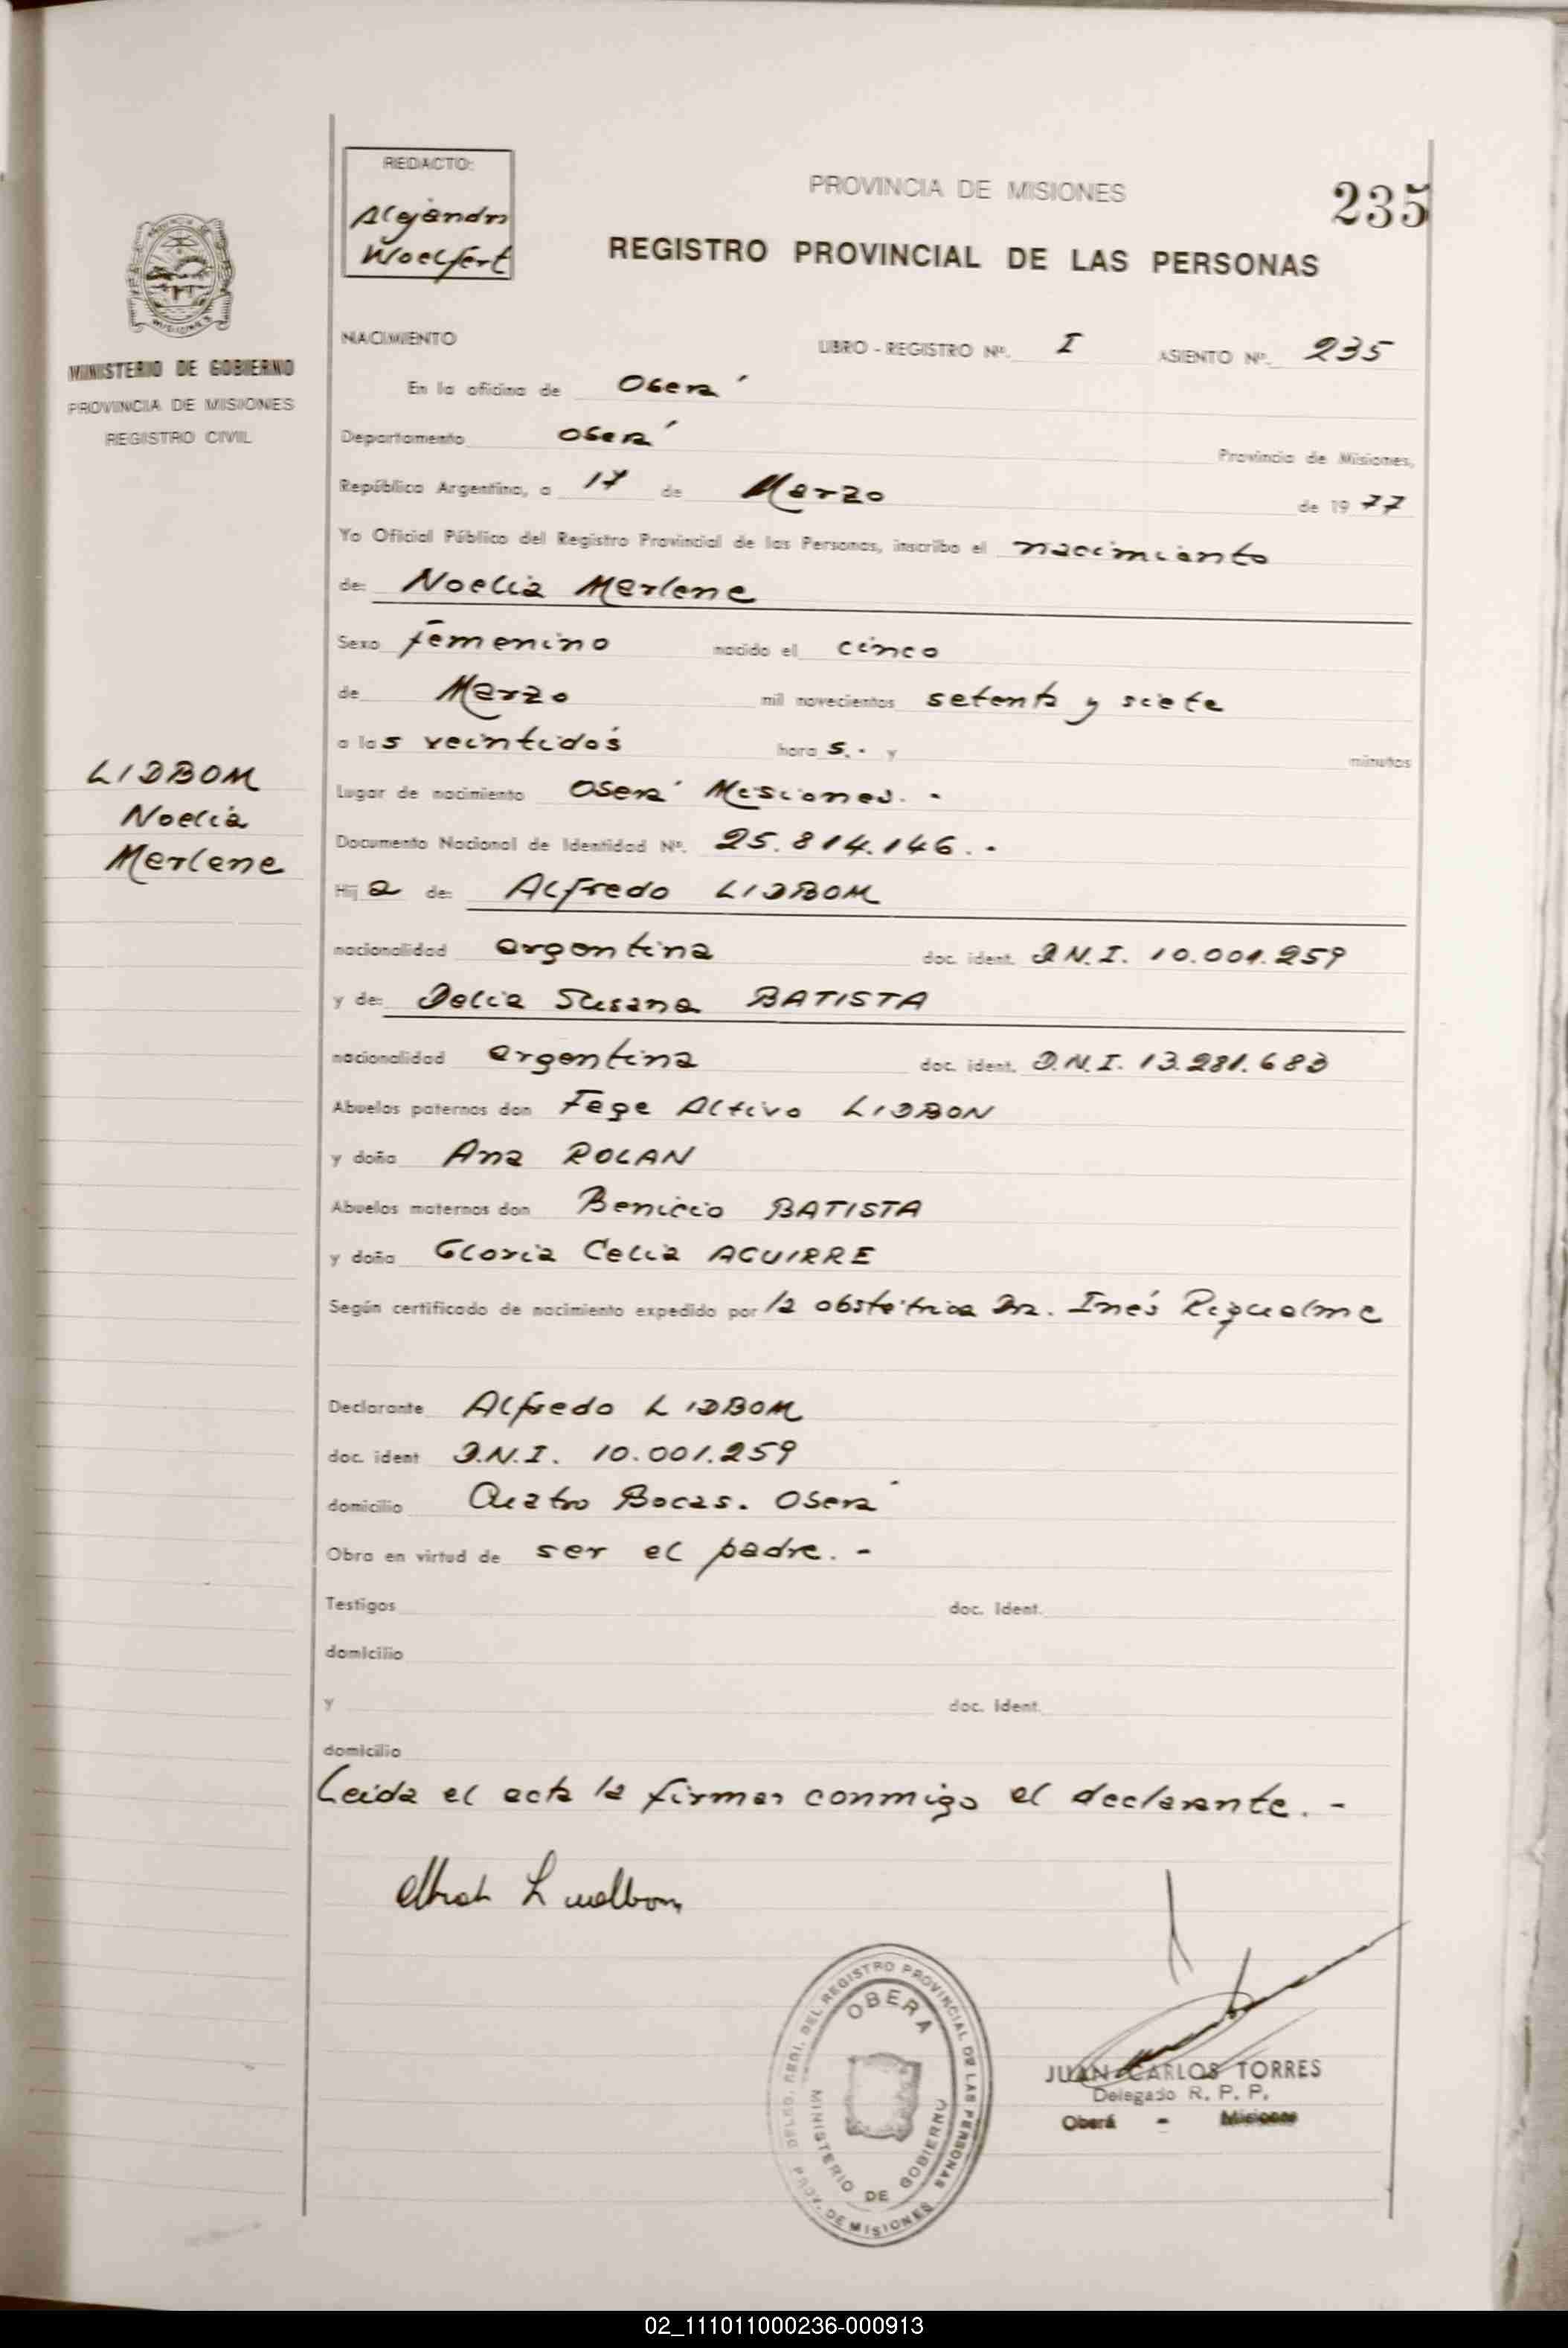 REDACTO:
Alejandro
Woelfert
PROVINCIA DE MISIONES
235
REGISTRO PROVINCIAL DE LAS PERSONAS
MINISTERIO DE GOBIERNO
PROVINCIA DE MISIONES
REGISTRO CIVIL
NACIMIENTO LIBRO - REGISTRO Nº. I ASIENTO Nº. 235
En la oficina de Oberá
Departamento Oberá Provincia de Misiones,
República Argentina, a 17 de Marzo de 1977
Yo Oficial Público del Registro Provincial de las Personas, inscribo el nacimiento
de: Noelia Merlene
Sexo femenino nacido el cinco
de Marzo mil novecientos setenta y siete
a las veintidós hora s.- y minutos
LIDBOM
Noelia
Merlene
Lugar de nacimiento Oberá Misiones. -
Documento Nacional de Identidad Nº. 25.814.146. -
Hij a de: Alfredo LIDBOM
nacionalidad argentina doc. ident. D.N.I. 10.001.259
y de: Delia Susana BATISTA
nacionalidad argentina doc. ident. D.N.I. 13.281.683
Abuelos paternos don Fage Altivo LIDBON
y doña Ana ROLAN
Abuelos maternos don Benicio BATISTA
y doña Gloria Celia AGUIRRE
Según certificado de nacimiento expedido por la obstétrica Dra. Inés Riquelme
Declarante Alfredo LIDBOM
doc. ident D.N.I. 10.001.259
domicilio Cuatro Bocas. Oberá
Obra en virtud de ser el padre. -
Testigos doc. Ident.
domicilio
y doc. Ident.
domicilio
Leída el acta la firman conmigo el declarante. -
OBERA
DEL REGISTRO PROVINCIAL DE LAS PERSONAS
MINISTERIO DE GOBIERNO
PROV. DE MISIONES
JUAN CARLOS TORRES
Delegado R. P. P.
Oberá - Misiones
02_111011000236-000913